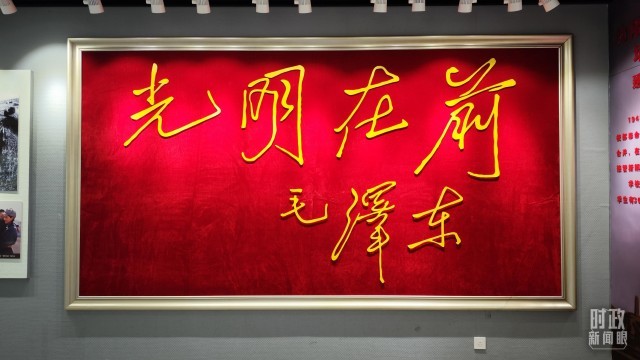 光明在前
毛澤东
时政
新闻眼